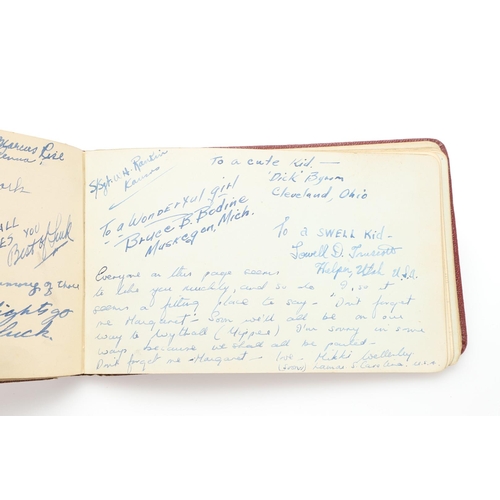 Rise
Penna.
ark
ALL
YOU
Best of Luck
of those
go
luck.
S/Sgt H. Rankin
Kansas
To a cute kid. —
Dick Byrom
Cleveland, Ohio
To a WONDERFUL girl
Bruce B. Bodine
Muskegon, Mich.
To a SWELL Kid —
Lowell D. Truscott
Helper, Utah U.S.A.
Everyone on this page seems
to like you muchly, and so do I, so it
seems a fitting place to say — Don't forget
me Margaret — Soon we'll all be on our
way to Wythall (Yippee) I'm sorry in some
ways because we shall all be parted —
Don't forget me Margaret — love — Nikki
Lamar S. Carolina. U.S.A